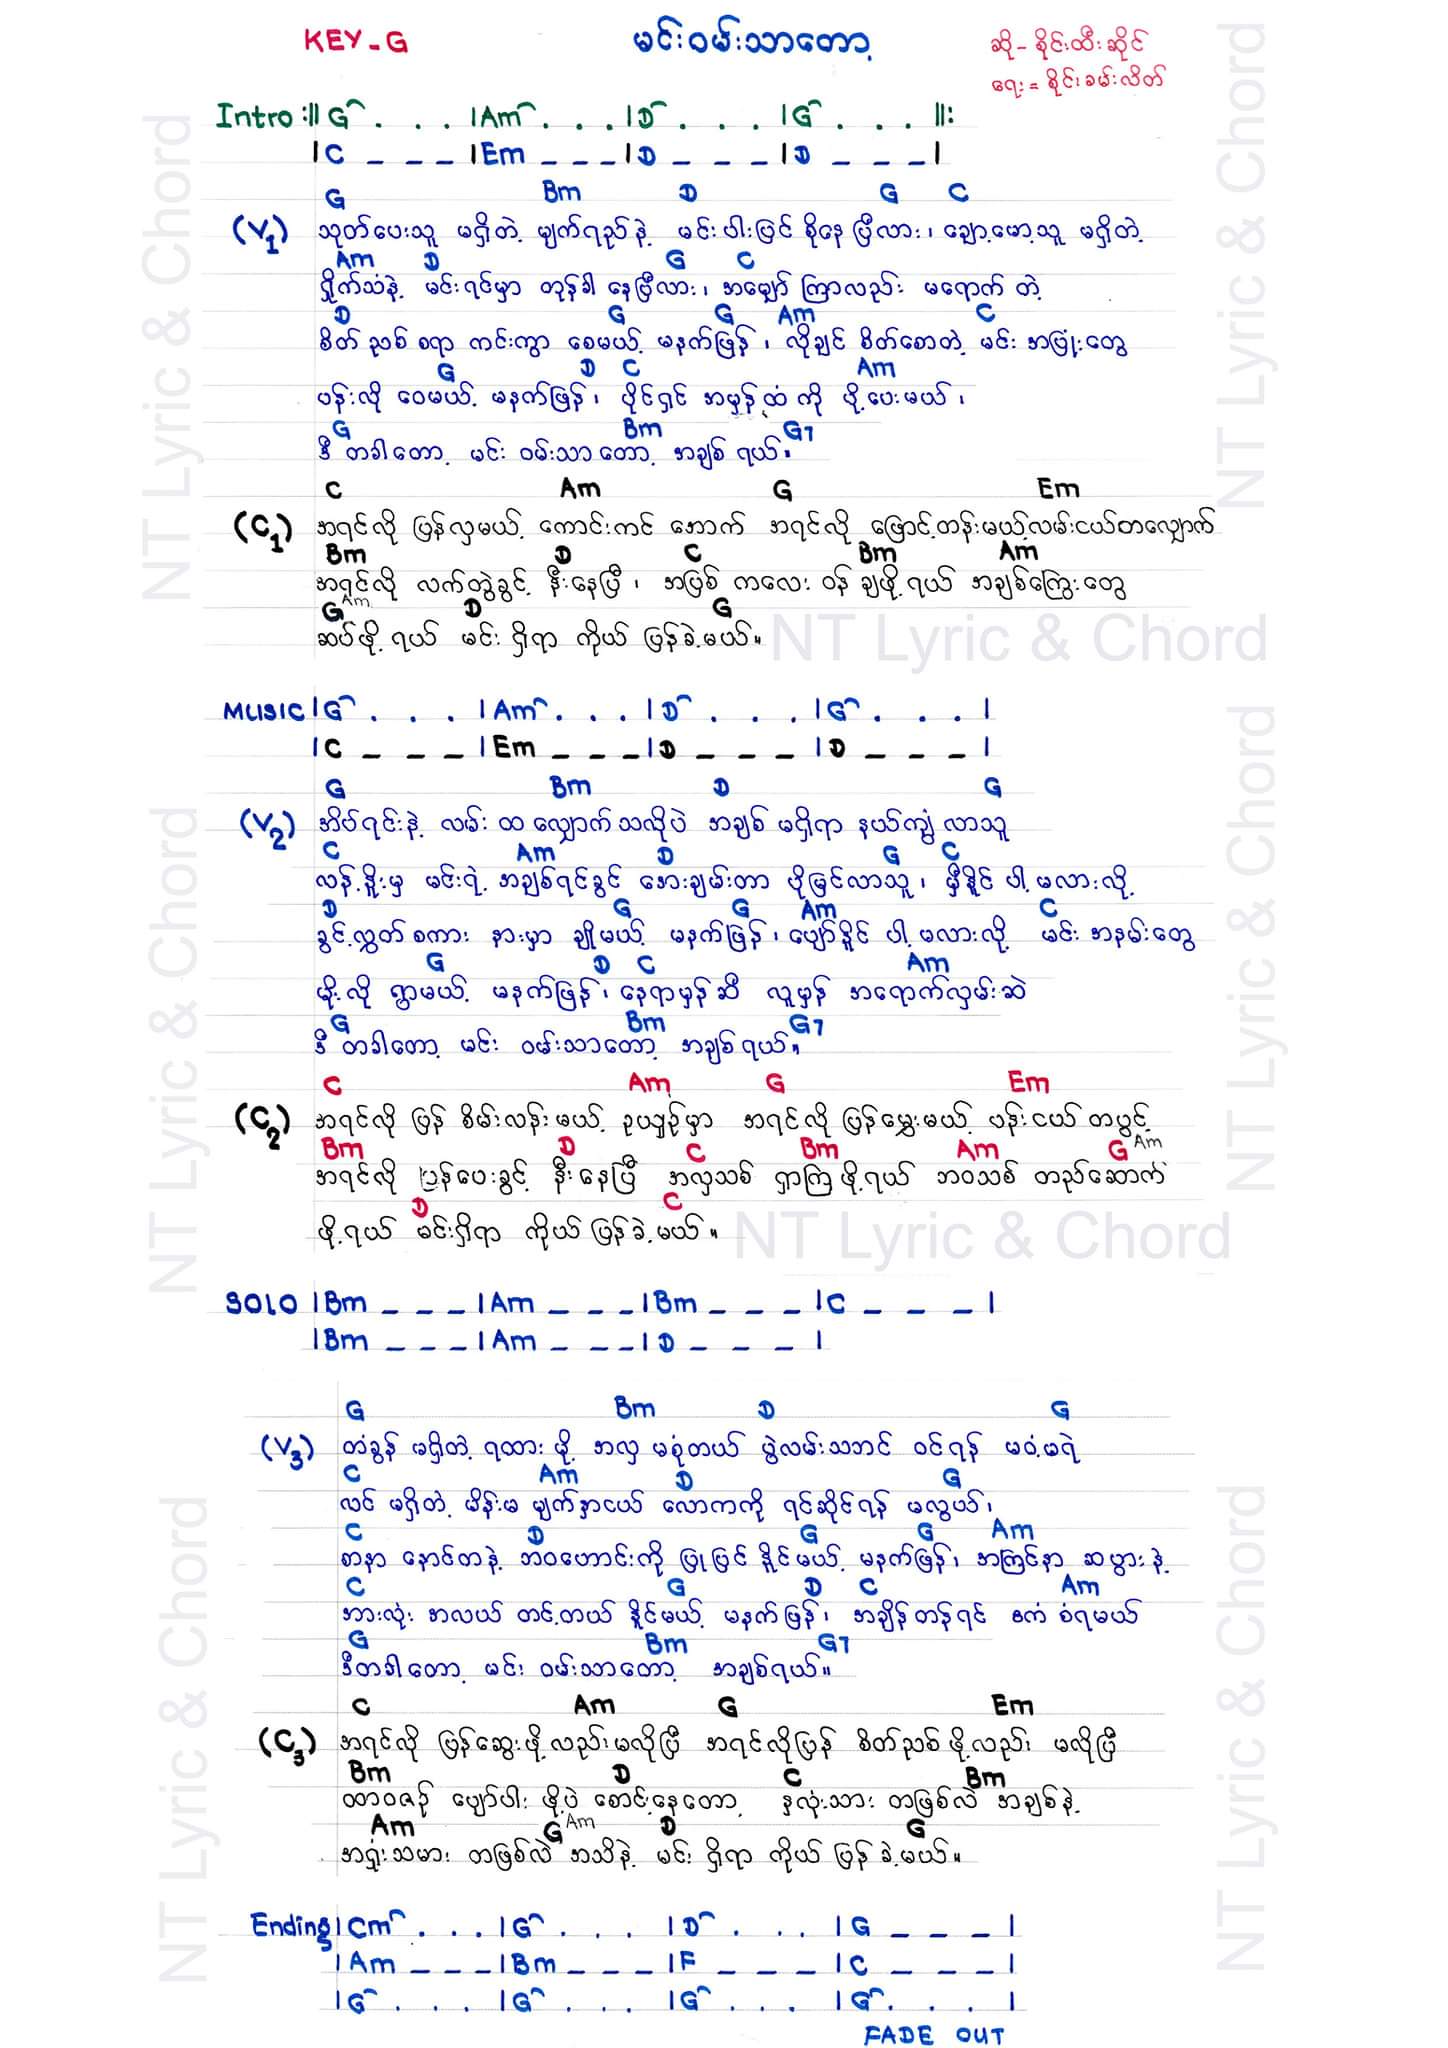 KEY - G
မင်းဝမ်းသာတော့
ဆို - စိုင်းထီးဆိုင်
ရေး = စိုင်းခမ်းလိတ်
Intro :|| G . . . | Am . . . | D . . . | G . . . ||:
| C _ _ _ | Em _ _ _ | D _ _ _ | D _ _ _ |
G Bm D G C
(V1) သုတ်ပေးသူ မရှိတဲ့ မျက်ရည်နဲ့ မင်းပါးပြင် စိုနေပြီလား၊ ချော့မော့သူ မရှိတဲ့
Am D G C
ရှိုက်သံနဲ့ မင်းရင်မှာ တုန်ခါ နေပြီလား၊ အမျှော် ကြာလည်း မရောက် တဲ့
D G G Am C
စိတ် ညစ် စရာ ကင်းကွာ စေမယ့် မနက်ဖြန်၊ လိုချင် စိတ်စောတဲ့ မင်း အပြုံးတွေ
G D C Am
ပန်းလို ဝေမယ့် မနက်ဖြန်၊ ပိုင်ရှင် အမှန်ထံ ကို ပို့ပေးမယ်၊
G Bm G7
ဒီ တခါတော့ မင်း ဝမ်းသာ တော့ အချစ် ရယ်။
C Am G Em
(C1) အရင်လို ပြန်လှမယ့် ကောင်းကင် အောက် အရင်လို ဖြောင့်တန်းမယ့်လမ်းငယ်တလျှောက်
Bm D C Bm Am
အရင်လို လက်တွဲခွင့် နီးနေပြီ၊ အပြစ် ကလေး ဝန် ချဖို့ ရယ် အချစ်ကြွေးတွေ
G Am D G
ဆပ်ဖို့ ရယ် မင်း ရှိရာ ကိုယ် ပြန်ခဲ့မယ်။
MUSIC | G . . . | Am . . . | D . . . | G . . . |
| C _ _ _ | Em _ _ _ | D _ _ _ | D _ _ _ |
G Bm D G
(V2) အိပ်ရင်းနဲ့ လမ်း ထ လျှောက် သလိုပဲ အချစ် မရှိရာ နယ်ကျွံ လာသူ
C Am D G C
လန့်နိုးမှ မင်းရဲ့ အချစ်ရင်ခွင် အေးချမ်းတာ ပိုမြင်လာသူ၊ မှီနိုင် ပါ့ မလားလို့
D G G Am C
ခွင့်လွှတ် စကား နားမှာ ချိုမယ့် မနက်ဖြန်၊ ပျော်နိုင် ပါ့ မလားလို့ မင်း အနမ်းတွေ
G D C Am
မိုးလို ရွာမယ့် မနက်ဖြန်၊ နေရာမှန်ဆီ လူမှန် အရောက်လှမ်းဆဲ
G Bm G7
ဒီ တခါတော့ မင်း ဝမ်းသာတော့ အချစ် ရယ်။
C Am G Em
(C2) အရင်လို ပြန် စိမ်းလန်းမယ့် ဥယျာဉ်မှာ အရင်လို ပြန်မွှေးမယ့် ပန်းငယ် တပွင့်
Bm D C Bm Am G Am
အရင်လို ပြန်ပေးခွင့် နီးနေပြီ အလှသစ် ရှာကြဖို့ရယ် ဘဝသစ် တည်ဆောက်
D C
ဖို့ရယ် မင်းရှိရာ ကိုယ်ပြန်ခဲ့မယ်။
SOLO | Bm _ _ _ | Am _ _ _ | Bm _ _ _ | C _ _ _ |
| Bm _ _ _ | Am _ _ _ | D _ _ _ |
G Bm D G
(V3) တံခွန် မရှိတဲ့ ရထား မို့ အလှ မစုံတယ် ပွဲလမ်းသဘင် ဝင်ရန် မဝံ့မရဲ
C Am D G
လင် မရှိတဲ့ မိန်းမ မျက်နှာငယ် လောကကို ရင်ဆိုင်ရန် မလွယ်၊
C D G G Am
စာနာ နောင်တနဲ့ ဘဝဟောင်းကို ပြုပြင် နိုင်မယ့် မနက်ဖြန်၊ အကြင်နာ ဆပွားနဲ့
C G D C Am
အားလုံး အလယ် တင့်တယ် နိုင်မယ့် မနက်ဖြန်၊ အချိန်တန်ရင် ဧကံ စံရမယ်
G Bm G7
ဒီတခါတော့ မင်း ဝမ်းသာတော့ အချစ်ရယ်။
C Am G Em
(C3) အရင်လို ပြန်ဆွေးဖို့ လည်းမလိုပြီ အရင်လိုပြန် စိတ်ညစ်ဖို့လည်း မလိုပြီ
Bm D C Bm
ထာဝစဉ် ပျော်ပါး ဖို့ပဲ စောင့်နေတော့ နှလုံးသား တဖြစ်လဲ အချစ်နဲ့
Am G Am D G
အရှုံးသမား တဖြစ်လဲ အသိနဲ့ မင်း ရှိရာ ကိုယ် ပြန် ခဲ့မယ်။
Ending | Cm . . . | G . . . | D . . . | G _ _ _ |
| Am _ _ _ | Bm _ _ _ | F _ _ _ | C _ _ _ |
| G . . . | G . . . | G . . . | G . . . |
FADE OUT
NT Lyric & Chord
NT Lyric & Chord
NT Lyric & Chord
NT Lyric & Chord
NT Lyric & Chord
NT Lyric & Chord
NT Lyric & Chord
NT Lyric & Chord